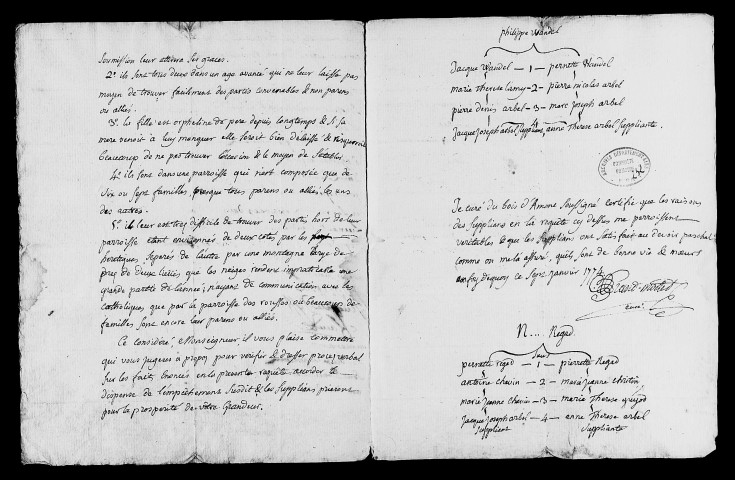 soumission leur attirera ses graces.
2.° ils sont tous deux dans un age avancé qui ne leur laisse pas
moyen de trouver facilement des partis convenables & non parens
ou alliés.
3.° la fille est orpheline de pere depuis longtemps & si sa
mere venoit a luy manquer elle seroit bien delaissée & risqueroit
beaucoup de ne pas trouver l'occasion & le moyen de s'etablir.
4.° ils sont dans une parroisse qui n'est composée que de
six ou sept familles presque tous parens ou alliés les uns
des autres.
5.° il leur est tres difficile de trouver des partis hors de leur
parroisse etant environnés de deux cotés par les
heretiques, separés de l'autre par une montagne large de
pres de deux lieües, que les neiges rendent impraticable une
grande partie de l'année; n'ayant de communication avec les
catholiques que par la parroisse des rousses où beaucoup de
familles sont encore leur parens ou alliés.
Ce consideré, Monseigneur, il vous plaise commettre
qui vous jugerez a propos pour verifier & dresser procesverbal
sur les faits enoncés en la presente requête accorder la
dispense de l'empêchement susdit & les supplians prieront
pour la prosperité de votre Grandeur.
philippe Vandel
Jacque Vandel — 1 — pernette Vandel
marie therese lamy — 2 — pierre nicolas arbel
pierre denis arbel — 3 — marc joseph arbel
Jacque Joseph arbel suppliant, 4 anne Therese arbel suppliante.
Je curé du bois d'Amone soussigné certifie que les raisons
des supplians en la requête cy dessus me parroissent
veritables & que les supplians ont satisfait au devoir paschal
comme on m'a assuré, quils sont de bonne vie & mœurs
en foy dequoy ce sept janvier 1774
curé
N.... Regad
pernette regad — 1 — pierrette Regad
antoine chavin — 2 — marie jeanne
marie jeanne chavin — 3 — marie Therese
Jacque Joseph arbel — 4 — anne Therese arbel
suppliant suppliante